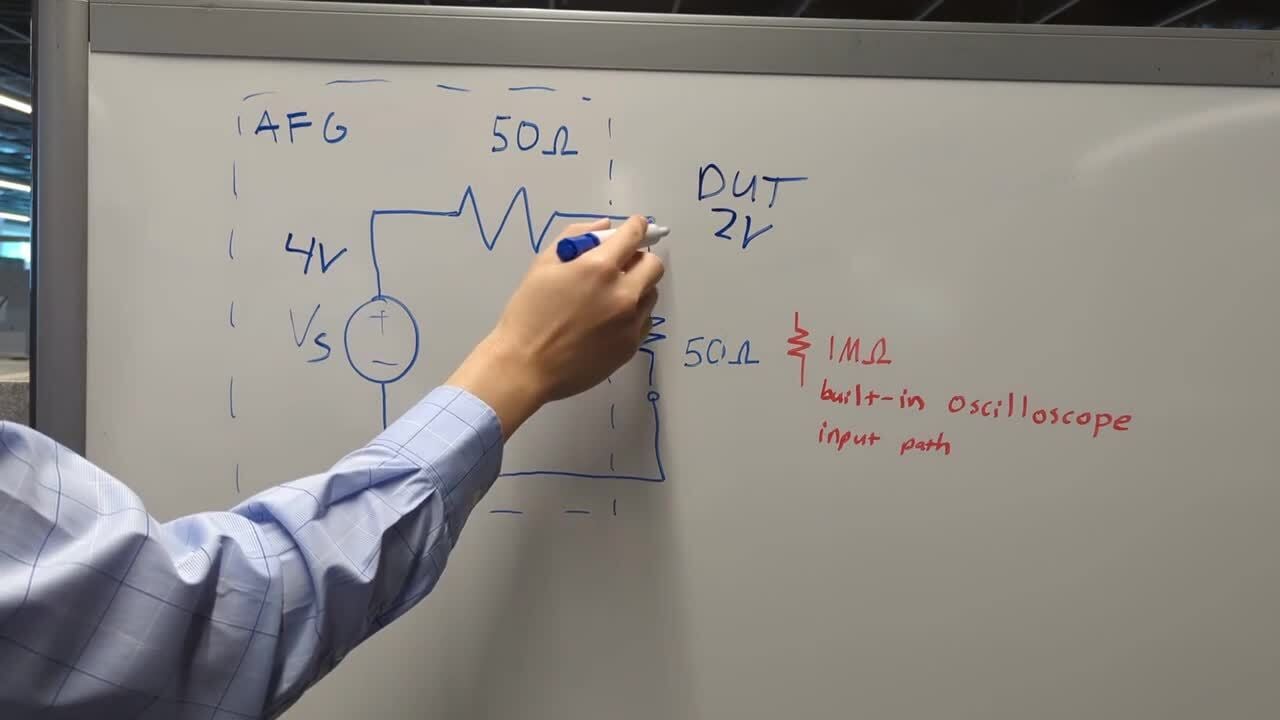 AFG
50Ω
DUT
2V
4V
+
Vs
−
50Ω
1MΩ
built-in oscilloscope
input path